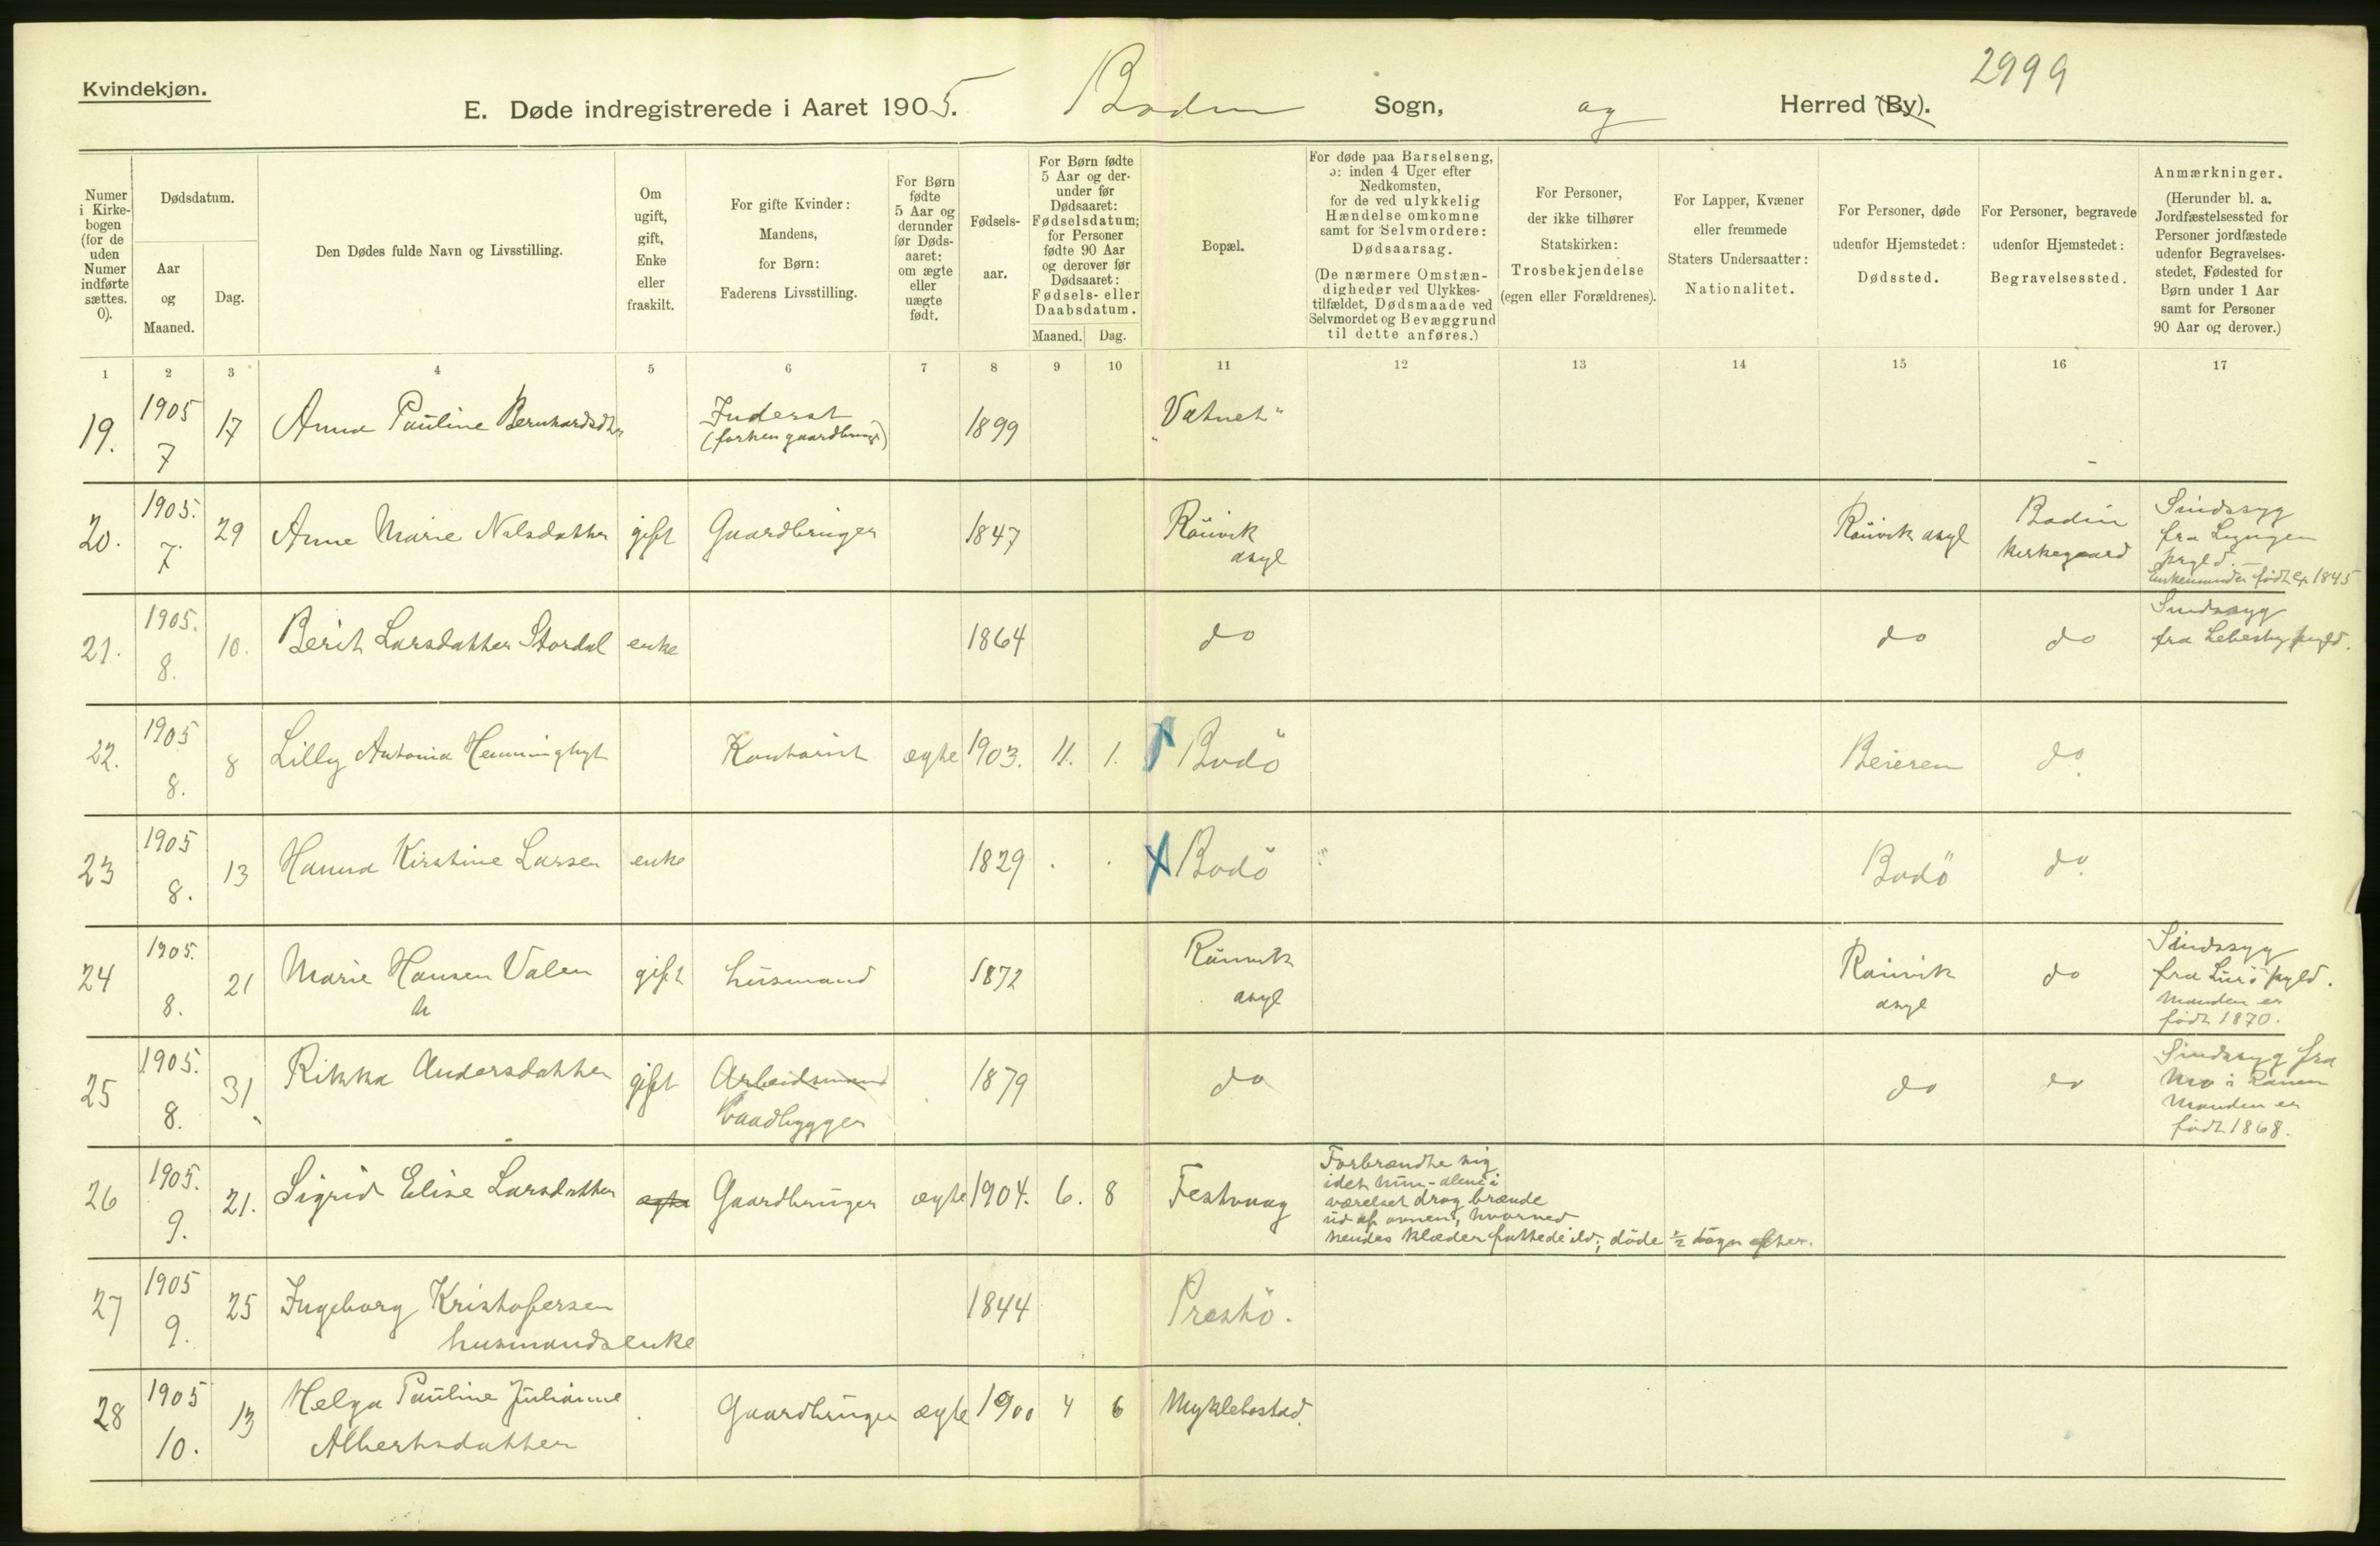 2999
Kvindekjøn.
E. Døde indregistrerede i Aaret 1905. Bodin Sogn, og Herred (By).
Numer i Kirkebogen (for de uden Numer indførte sættes. 0).
Dødsdatum.
Aar og Maaned.
Dag.
Den Dødes fulde Navn og Livsstilling.
Om ugift, gift, Enke eller fraskilt.
For gifte Kvinder: Mandens, for Børn: Faderens Livsstilling.
For Børn fødte 5 Aar og derunder før Dødsaaret: om ægte eller uægte født.
Fødselsaar.
For Børn fødte 5 Aar og derunder før Dødsaaret: Fødselsdatum; for Personer fødte 90 Aar og derover før Dødsaaret: Fødsels- eller Daabsdatum.
Maaned. Dag.
Bopæl.
For døde paa Barselseng, ɔ: inden 4 Uger efter Nedkomsten, for de ved ulykkelig Hændelse omkomne samt for Selvmordere: Dødsaarsag.
(De nærmere Omstændigheder ved Ulykkestilfældet, Dødsmaade ved Selvmordet og Bevæggrund til dette anføres.)
For Personer, der ikke tilhører Statskirken: Trosbekjendelse (egen eller Forældrenes).
For Lapper, Kvæner eller fremmede Staters Undersaatter: Nationalitet.
For Personer, døde udenfor Hjemstedet: Dødssted.
For Personer, begravede udenfor Hjemstedet: Begravelsessted.
Anmærkninger.
(Herunder bl. a. Jordfæstelsessted for Personer jordfæstede udenfor Begravelsesstedet, Fødested for Børn under 1 Aar samt for Personer 90 Aar og derover.)
1 2 3 4 5 6 7 8 9 10 11 12 13 14 15 16 17
19. 1905 7 17 Anna Pauline Bernhardsdtr Inderst (forhen gaardbruger) 1899 "Vatnet"
20. 1905. 7. 29 Anne Marie Nilsdatter gift Gaardbruger 1847 Rönvik asyl Rönvik asyl Bodin kirkegaard Sindssyg
fra Lyngen
prgld.
født 1845
21. 1905. 8. 10. Berit Larsdatter Stordal enke 1864 do do do Sindssyg
fra Lebesby prgld.
22. 1905 8. 8 Lilly Antonia Kontorist ægte 1903. 11. 1. Bodö Beieren do.
23 1905 8. 13 Hanna Kirstine Larsen enke 1829 Bodö Bodö do.
24 1905. 8. 21 Marie Hansen Valen gift husmand 1872 Rönvik asyl Rönvik asyl do Sindssyg
fra Lurö prgld.
Manden er
født 1870.
25 1905. 8. 31. Rikka Andersdatter gift Arbeidsmand
Baadbygger 1879 do do do Sindssyg fra
Mo i Ranen
Manden er
født 1868.
26 1905. 9. 21. Sigrid Elise Larsdatter ægte Gaardbruger ægte 1904. 6. 8 Festvaag Forbrændte sig
idet hun - alene i
værelset drog brænde
ud af ovnen, hvorved
hendes klæder fattede ild; døde ½ døgn efter.
27 1905 9. 25 Ingeborg Kristofersen
husmandsenke 1844 Prestö.
28 1905 10. 13 Helga Pauline Julianne
Albertsdatter Gaardbruger ægte 1900 4 6 Myklebostad.